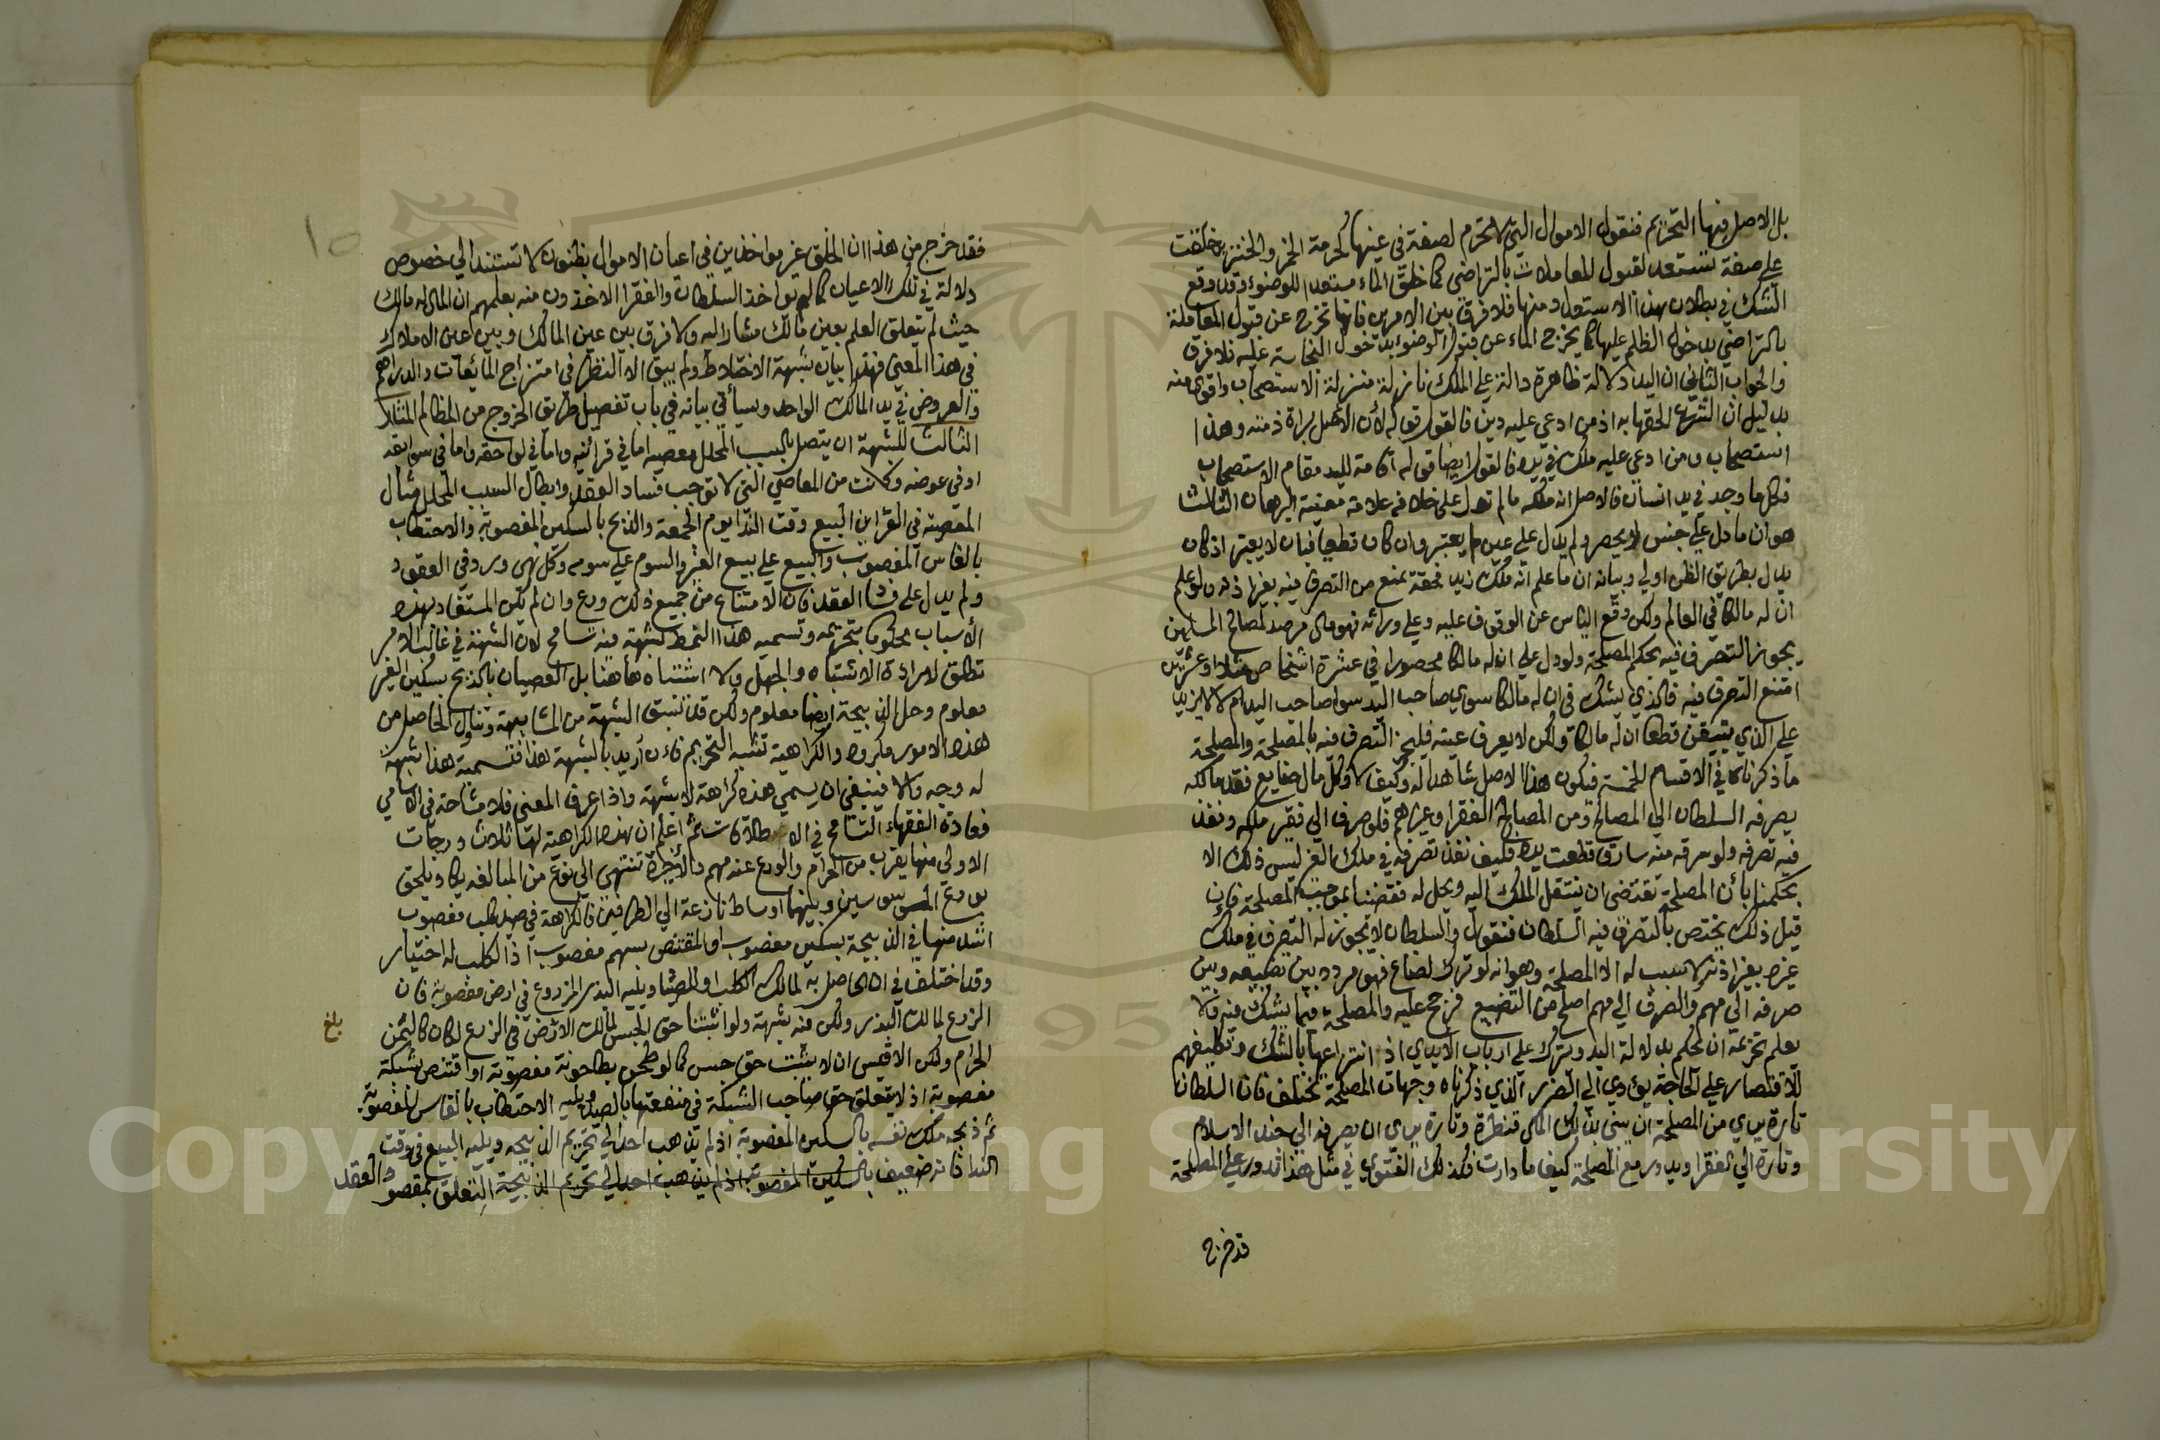 بل الاصل فيها التحريم فنقول الاموال التي لا تحرم لصفة في عينها كحرمة الخمر والخنزير خلقت
علي صفة تستعد لقبول المعاملات بالتراضي كما خلق الماء مستعدا للوضوء وقد وقع
الشك في بطلان هذا الاستعداد منها فلا فرق بين الامرين فانها تخرج عن قبول المعاملة
بالتراضي بدخول الظلم عليها كما يخرج الماء عن قبول الوضوء بدخول النجاسة عليه فلا فرق
والجواب الثاني ان اليد دلالة ظاهرة دالة علي الملك نازلة منزلة الاستصحاب واقوي منه
بدليل ان الشرع الحقها به اذ من ادعي عليه دين فالقول قوله لأن الاصل براة ذمته وهذا
استصحاب ومن ادعي عليه ملك في يده فالقول ايضا قوله اقامة لليد مقام الاستصحاب
فكل ما وجد في يد انسان فالاصل انه ملكه ما لم تدل علي خلافه علامة معينة البرهان الثالث
هو ان ما دل علي جنس لا يحصر ولم يدل علي عين لم يعتبر وان كان قطعيا فبان لا يعتبر اذ كان
يدل بطريق الظن اولي وبيانه ان ما علم انه ملك زيد فحقه يمنع من التصرف فيه بغير اذنه ولو علم
ان له مالكا في العالم ولكن وقع الياس عن الوقوف عليه وعلي وراثه فهو مال مرصد لمصالح المسلمين
يجوز التصرف فيه بحكم المصلحة ولو دل علي ان له مالكا محصورا في عشرة اشخاص مثلا او عشرين
امتنع التصرف فيه فالذي يشك في ان له مالكا سوي صاحب اليد سوا صاحب اليد ام لا لا يزيد
علي الذي يتيقن قطعا ان له مالكا ولكن لا يعرف عينه فليجز التصرف فيه بالمصلحة والمصلحة
ما ذكرناه في الاقسام الخمسة فيكون هذا الاصل شاهدا له وكيف لا وكل مال ضايع فقد مالكه
يصرفه السلطان الي المصالح ومن المصالح الفقرا وغيرهم فلو صرف الي فقير ملكه ونفذ
فيه تصرفه ولو سرقه منه سارق قطعت يده فكيف نفذ تصرفه في ملك الغير ليس ذلك الا
بحكمنا بأن المصلحة تقتضي ان ينتقل الملك اليه ويحل له فقضينا بموجب المصلحة فان
قيل ذلك يختص بالتصرف فيه السلطان فنقول والسلطان لا يجوز له التصرف في ملك
غيره بغير اذنه لا سبب له الا المصلحة وهو انه لو ترك لضاع فهو مردد بين تضييعه وبين
صرفه الي مهم والصرف الي مهم اصلح من التضييع فرجح عليه والمصلحة فيما يشك فيه ولا
يعلم تحريمه ان يحكم بدلالة اليد ويترك علي ارباب الايدي اذ انتزاعها بالشك وتكليفهم
الاقتصار علي الحاجة يؤدي الي الضرر الذي ذكرناه وجهات المصلحة تختلف فان السلطان
تارة يري من المصلحة ان يبني بذلك المال قنطرة وتارة يري ان يصرفه الي جند الاسلام
وتارة الي الفقرا ويدور مع المصلحة كيف ما دارت فكذلك الفتوي في مثل هذا تدور علي المصلحة
قد خرج
١٥
فقد خرج من هذا ان الخلق غير مواخذين في اعيان الاموال بظنون لا تستند الي خصوص
دلالة في تلك الاعيان كما لم يواخذ السلطان والفقرا الاخذون منه بعلمهم ان المال له مالك
حيث لم يتعلق العلم بعين مالك مشار اليه ولا فرق بين عين المالك وبين عين الاملاك
في هذا المعني فهذا بيان شبهة الاختلاط ولم يبق الا النظر في امتزاج المائعات والدراهم
والعروض في يد المالك الواحد وسيأتي بيانه في باب تفصيل طريق الخروج من المظالم المثار
الثالث للشبهة ان يتصل بالسبب المحلل معصية اما في قرائنه واما في لواحقه واما في سوابقه
او في عوضه وكانت من المعاصي التي لا توجب فساد العقد وابطال السبب المحلل مثال
المعصية في القراين البيع وقت الندا يوم الجمعة والذبح بالسكين المغصوبة والاحتطاب
بالفاس المغصوب والبيع علي بيع الغير والسوم علي سومه وكل نهي ورد في العقود
ولم يدل علي فساد العقد فان الامتناع من جميع ذلك ورع وان لم يكن المستفاد بهذه
الأسباب محكوما بتحريمه وتسميه هذا النمط شبهة فيه تسامح لان الشبهة في غالب الامر
تطلق لارادة الاشتباه والجهل ولا اشتباه هاهنا بل العصيان بالذبح بسكين الغير
معلوم وحل الذبيحة ايضا معلوم ولكن قد تشتق الشبهة من المشابهة وتناول الحاصل من
هذه الامور مكروه والكراهية تشبه التحريم فان أريد بالشبهة هذا فتسمية هذا شبهة
له وجه والا فينبغي ان يسمي هذه كراهة لا شبهة واذا عرف المعني فلا مشاحة في الاسامي
فعادة الفقهاء التسامح في الاطلاقات ثم اعلم ان هذه الكراهية لها ثلاث درجات
الاولي منها يقرب من الحرام والورع عنه مهم والأخيرة تنتهي الي نوع من المبالغة يكاد يلحق
بورع الموسوسين وبينهما اوساط نازعة الي الطرفين فالكراهة في صيد كلب مغصوب
اشد منها في الذبيحة بسكين مغصوب او المقتنص بسهم مغصوب اذ الكلب له اختيار
وقد اختلف في ان الحاصل به لمالك الكلب او للصياد ويليه البذر المزروع في ارض مغصوبة فان
الزرع لمالك البذر ولكن فيه شبهة ولو اثبتنا حق الحبس لمالك الارض في الزرع لكان كالثمن
الحرام ولكن الاقيس ان لا يثبت حق حبس كما لو طحن بطاحونة مغصوبة او اقتنص بشبكة
مغصوبة اذ لا يتعلق حق صاحب الشبكة في منفعتها بالصيد ويليه الاحتطاب بالفاس المغصوبة
ثم ذبحه ملك نفسه بالسكين المغصوبة اذ لم يذهب احد الي تحريم الذبيحة ويليه البيع في وقت
الندا فانه ضعيف بالسكين المغصوبة اذ لم يذهب احد الي تحريم الذبيحة التعلق بمقصود العقد
بلغ
Copyright © King Saud University